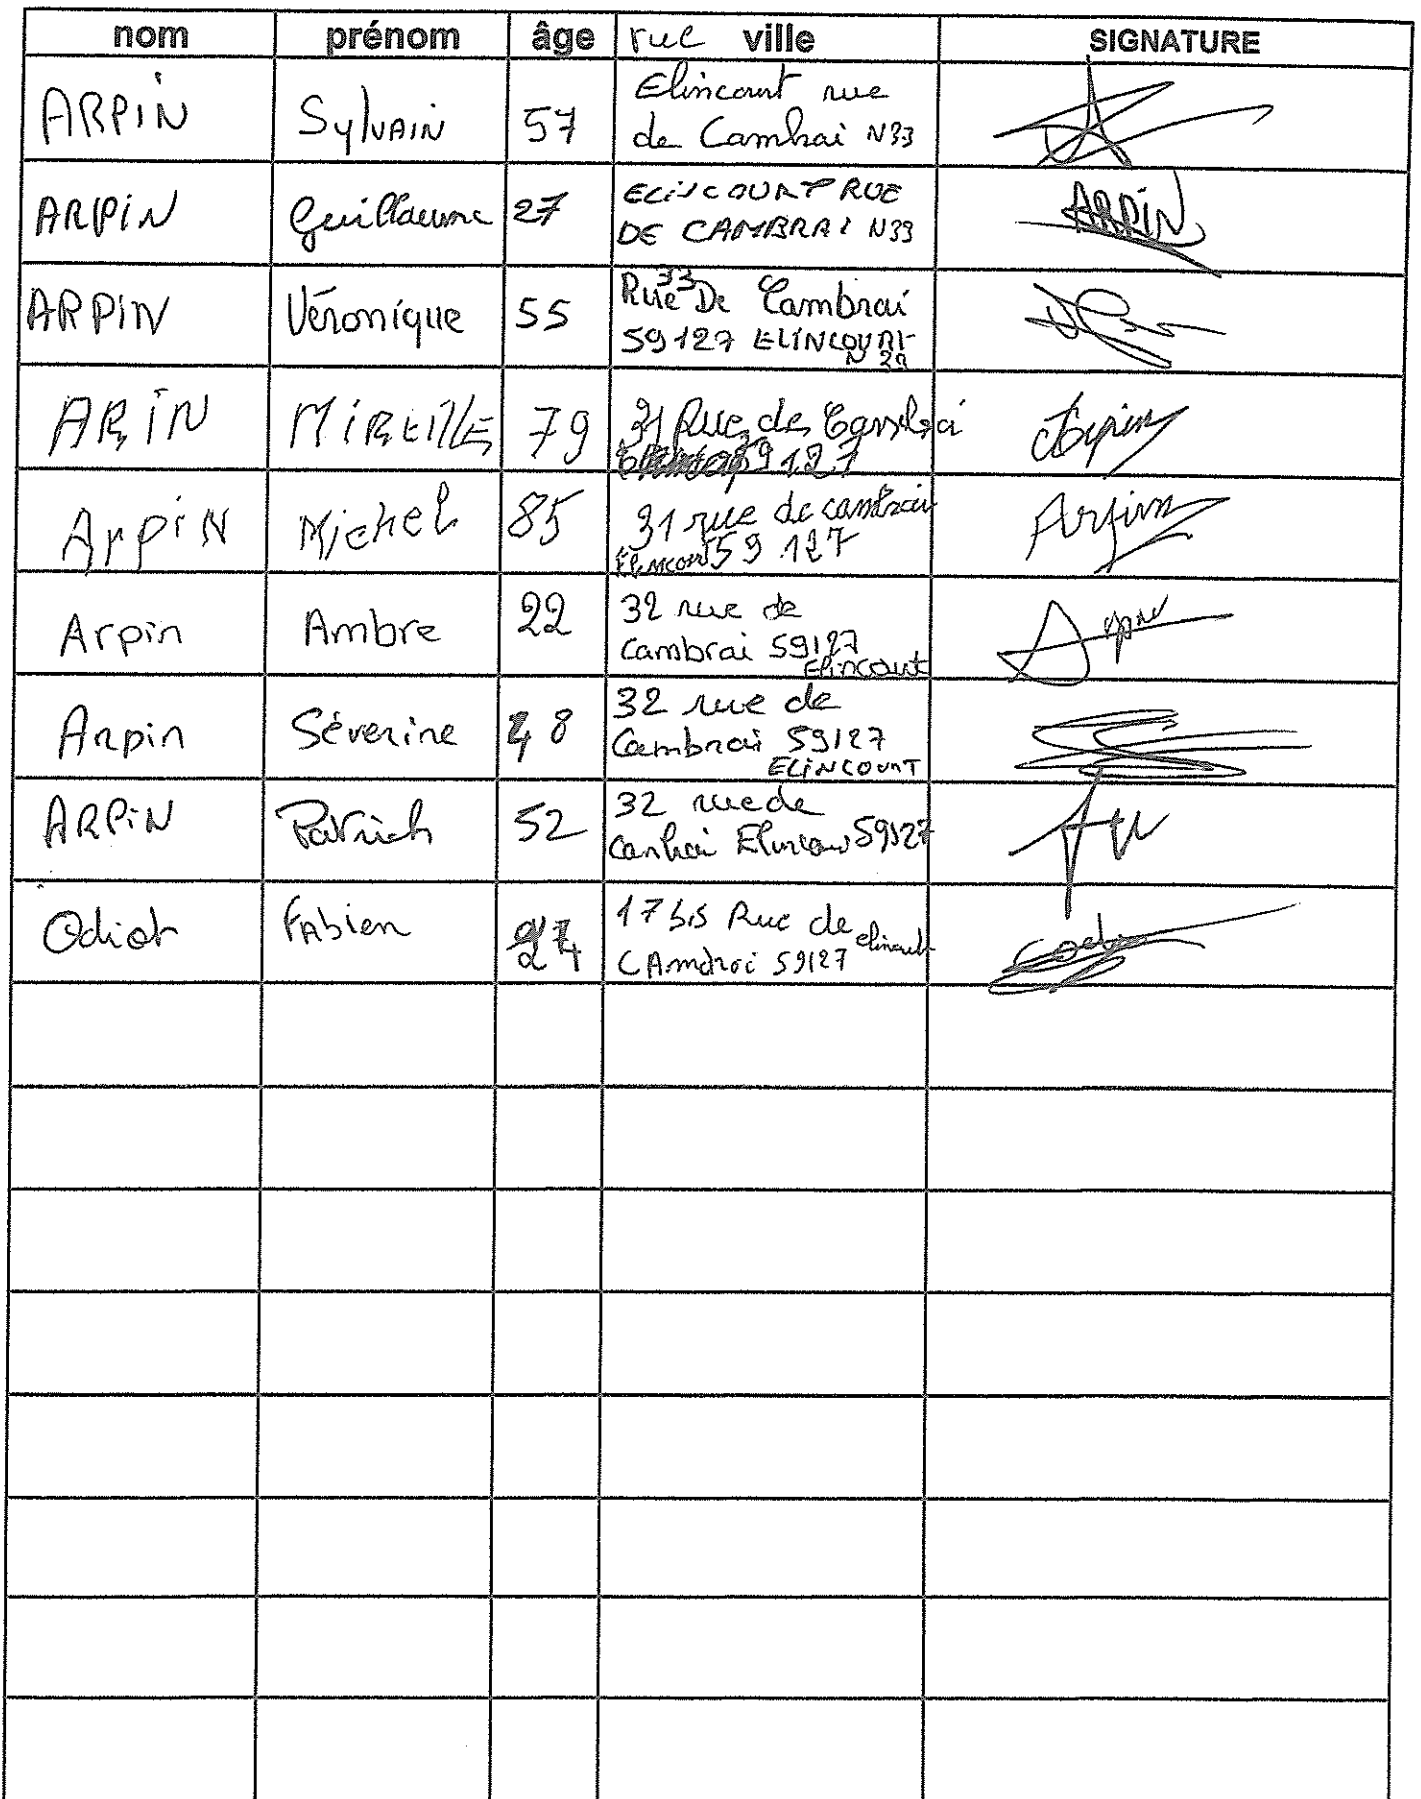 nom prénom âge rue ville SIGNATURE
ARPIN Sylvain 57 Elincourt rue
de Cambrai N33
ARPIN Guillaume 27 ELINCOURT RUE
DE CAMBRAI N33 ARPIN
ARPIN Véronique 55 Rue 33 De Cambrai
59127 ELINCOURT
ARIN MIREILLE 79 31 Rue de Cambrai
59127
Arpin Michel 85 31 rue de cambrai
Elincourt 59 127
Arpin Ambre 22 32 rue de
Cambrai 59127
Elincourt
Arpin Séverine 48 32 rue de
Cambrai 59127
ELINCOURT
ARPIN Patrick 52 32 rue de
Cambrai Elincourt 59127
Odiot Fabien 17 bis Rue de Elincourt
CAmbrai 59127